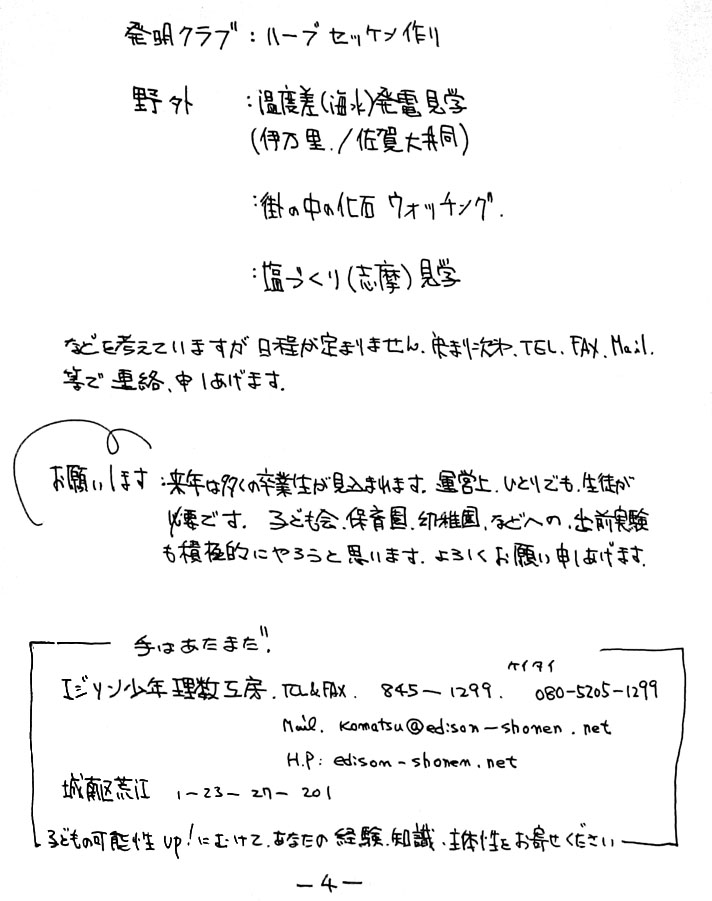 発明クラブ:ハーブセッケン作り
野外 :温度差(海水)発電見学
(伊万里./佐賀大共同)
:街の中の化石 ウォッチング.
:塩づくり(志摩)見学
などを考えていますが日程が定まりません.決まり次第.TEL.FAX.Mail.
等で連絡、申しあげます.
お願いします:来年は多くの卒業生が見込まれます.運営上.ひとりでも.生徒が
必要です. 子ども会.保育園.幼稚園.などへの.出前実験
も積極的にやろうと思います.よろしくお願い申しあげます.
手はあたまだ".
ケイタイ
エジソン少年理数工房.TEL&FAX. 845-1299. 080-5205-1299
Mail. komatsu@edison-shonen.net
H.P: edison-shonen.net
城南区荒江 1-23-27-201
子どもの可能性up!にむけて.あなたの経験.知識.主体性をお寄せください
-4-